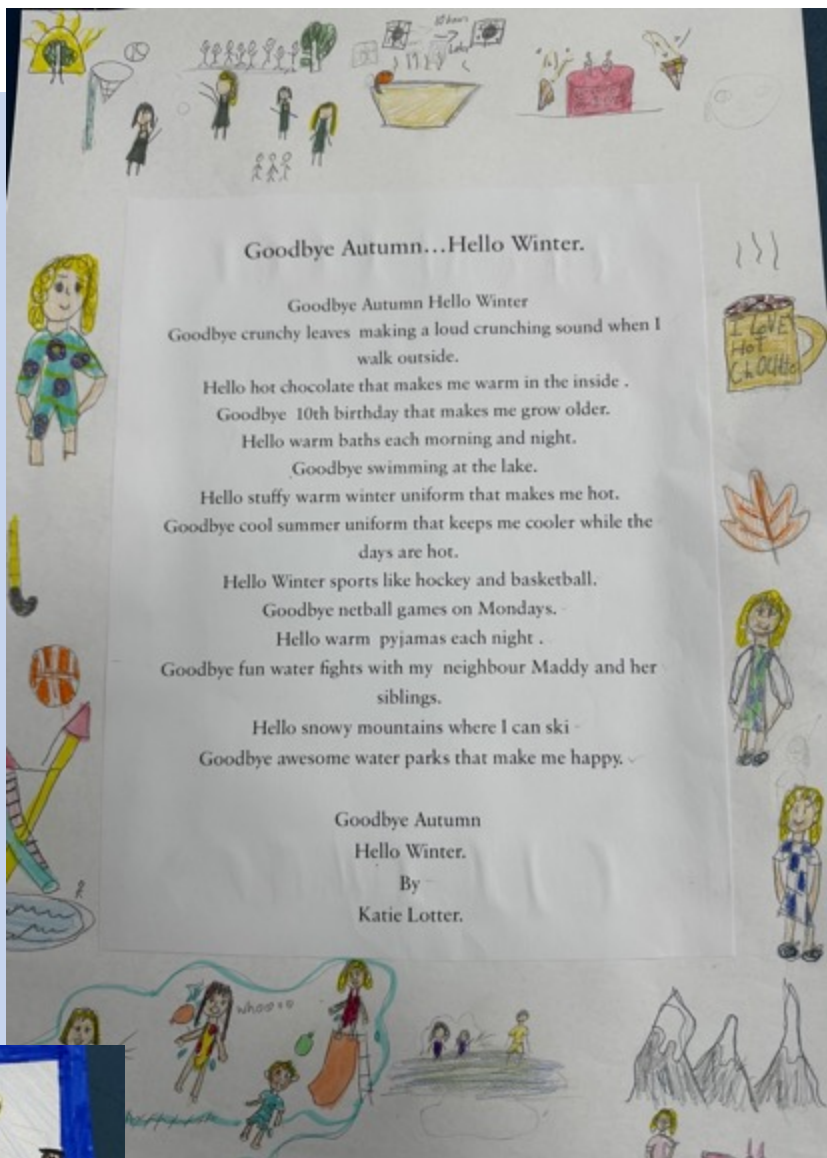 10 hours
Later
Goodbye Autumn...Hello Winter.
Goodbye Autumn Hello Winter
Goodbye crunchy leaves making a loud crunching sound when I
walk outside.
Hello hot chocolate that makes me warm in the inside .
Goodbye 10th birthday that makes me grow older.
Hello warm baths each morning and night.
Goodbye swimming at the lake.
Hello stuffy warm winter uniform that makes me hot.
Goodbye cool summer uniform that keeps me cooler while the
days are hot.
Hello Winter sports like hockey and basketball.
Goodbye netball games on Mondays.
Hello warm pyjamas each night .
Goodbye fun water fights with my neighbour Maddy and her
siblings.
Hello snowy mountains where I can ski
Goodbye awesome water parks that make me happy.
Goodbye Autumn
Hello Winter.
By
Katie Lotter.
I LOVE
HOT